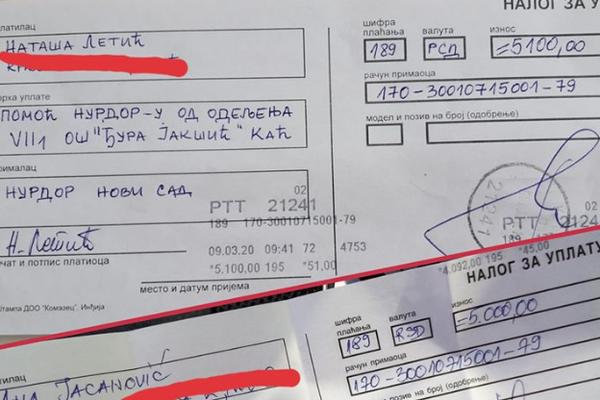 НАЛОГ ЗА У
платилац
НАТАША ЛЕТИЋ
шифра плаћања
валута
износ
189
РСД
=5100,00
рачун примаоца
170-30010715001-79
сврха уплате
ПОМОЋ НУРДОР-У ОД ОДЕЉЕЊА
VII1 ОШ "ЂУРА ЈАКШИЋ" КАЋ
модел и позив на број (одобрење)
прималац
НУРДОР НОВИ САД
02
PTT 21241
189 170-30010715001-79
Н. Летић
09.03.20 09:41 72 4753
*5.100,00 195 *51,00
печат и потпис платиоца
место и датум пријема
Штампа ДОО "Комазец", Инђија
21241
02
PTT 2124
189
*45,00
*4.092,00 195
НАЛОГ ЗА УПЛАТУ
шифра плаћања
валута
износ
189
RSD
=5.000,00
рачун примаоца
170-30010715001-79
модел и позив на број (одобрење)
JACANOVIĆ